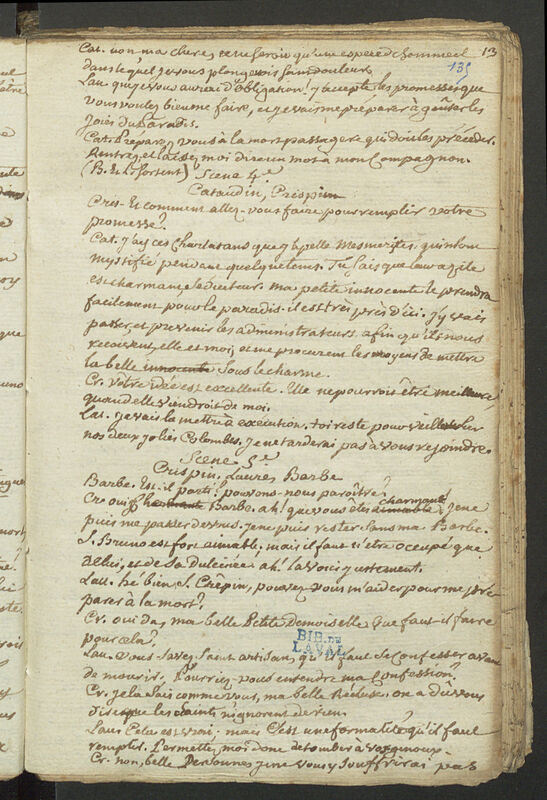 13
135
Cat. non ma chere, ce ne seroit qu'une espece de sommeil
dans lequel je vous plongerois sans douleur.
Lau. que je vous aurai d'obligation! j'accepte les promesses que
vous voulez bien me faire, et je vais me préparer à goûter les
joies du Paradis.
Cat. Préparez vous à la mort passagere qui doit les précéder.
Rentrez, et laissez moi dire un mot à mon Compagnon.
(B. et L. sortent) Scene 4.e
Cataudin, Crispin
Cris. Et comment allez-vous faire pour remplir votre
promesse?
Cat. J'ay ces Charlatans que j'appelle Mesmeristes, qui m'ont
mystifié pendant quelque tems. Tu sais que leur azile
est charmant, séducteur. ma petite innocente le prendra
facilement pour le paradis. il est très près d'ici. j'y vais
passer, et prevenir les administrateurs afin qu'ils nous
recoivent, elle et moi, et me procurent les moyens de mettre
la belle innocente sous le charme.
Cr. Votre idée est excellente. Elle ne pourroit être meilleure,
quand elle viendroit de moi.
Cat. je vais la mettre à execution. toi reste pour veiller sur
nos deux jolies Colombes. je ne tarderai pas à vous rejoindre.
Scene 5.e
Crispin, Laure, Barbe
Barbe. Est-il parti? pouvons-nous paroître?
Cr. oui, Barbe. ah! que vous êtes aimable charmante! je ne
puis me passer de vous. je ne puis rester sans ma Barbe.
S. Bruno est fort aimable, mais il faut s'être occupé que
de lui, et de sa dulcinée ah! la voici justement.
Lau. he bien, S. Crêpin, pouvez vous m'aider pour me pré
parer à la mort?
Cr. oui da, ma belle Petite demoiselle que faut-il faire
pour cela?
Lau. vous savez, Saint artisan, qu'il faut se confesser avan
de mourir. Pourriez-vous entendre ma Confession?
Cr. je la sais comme vous, ma belle heureuse. on a dû vous
dire que les Saints n'ignorent de rien.
Lau. Cela est vrai; mais C'est une formalité qu'il faut
remplir. Permettez moi donc de tomber à vos genoux.
Cr. non, belle Personne, je ne vous y souffrirai pas
BIB. DE
LAVAL